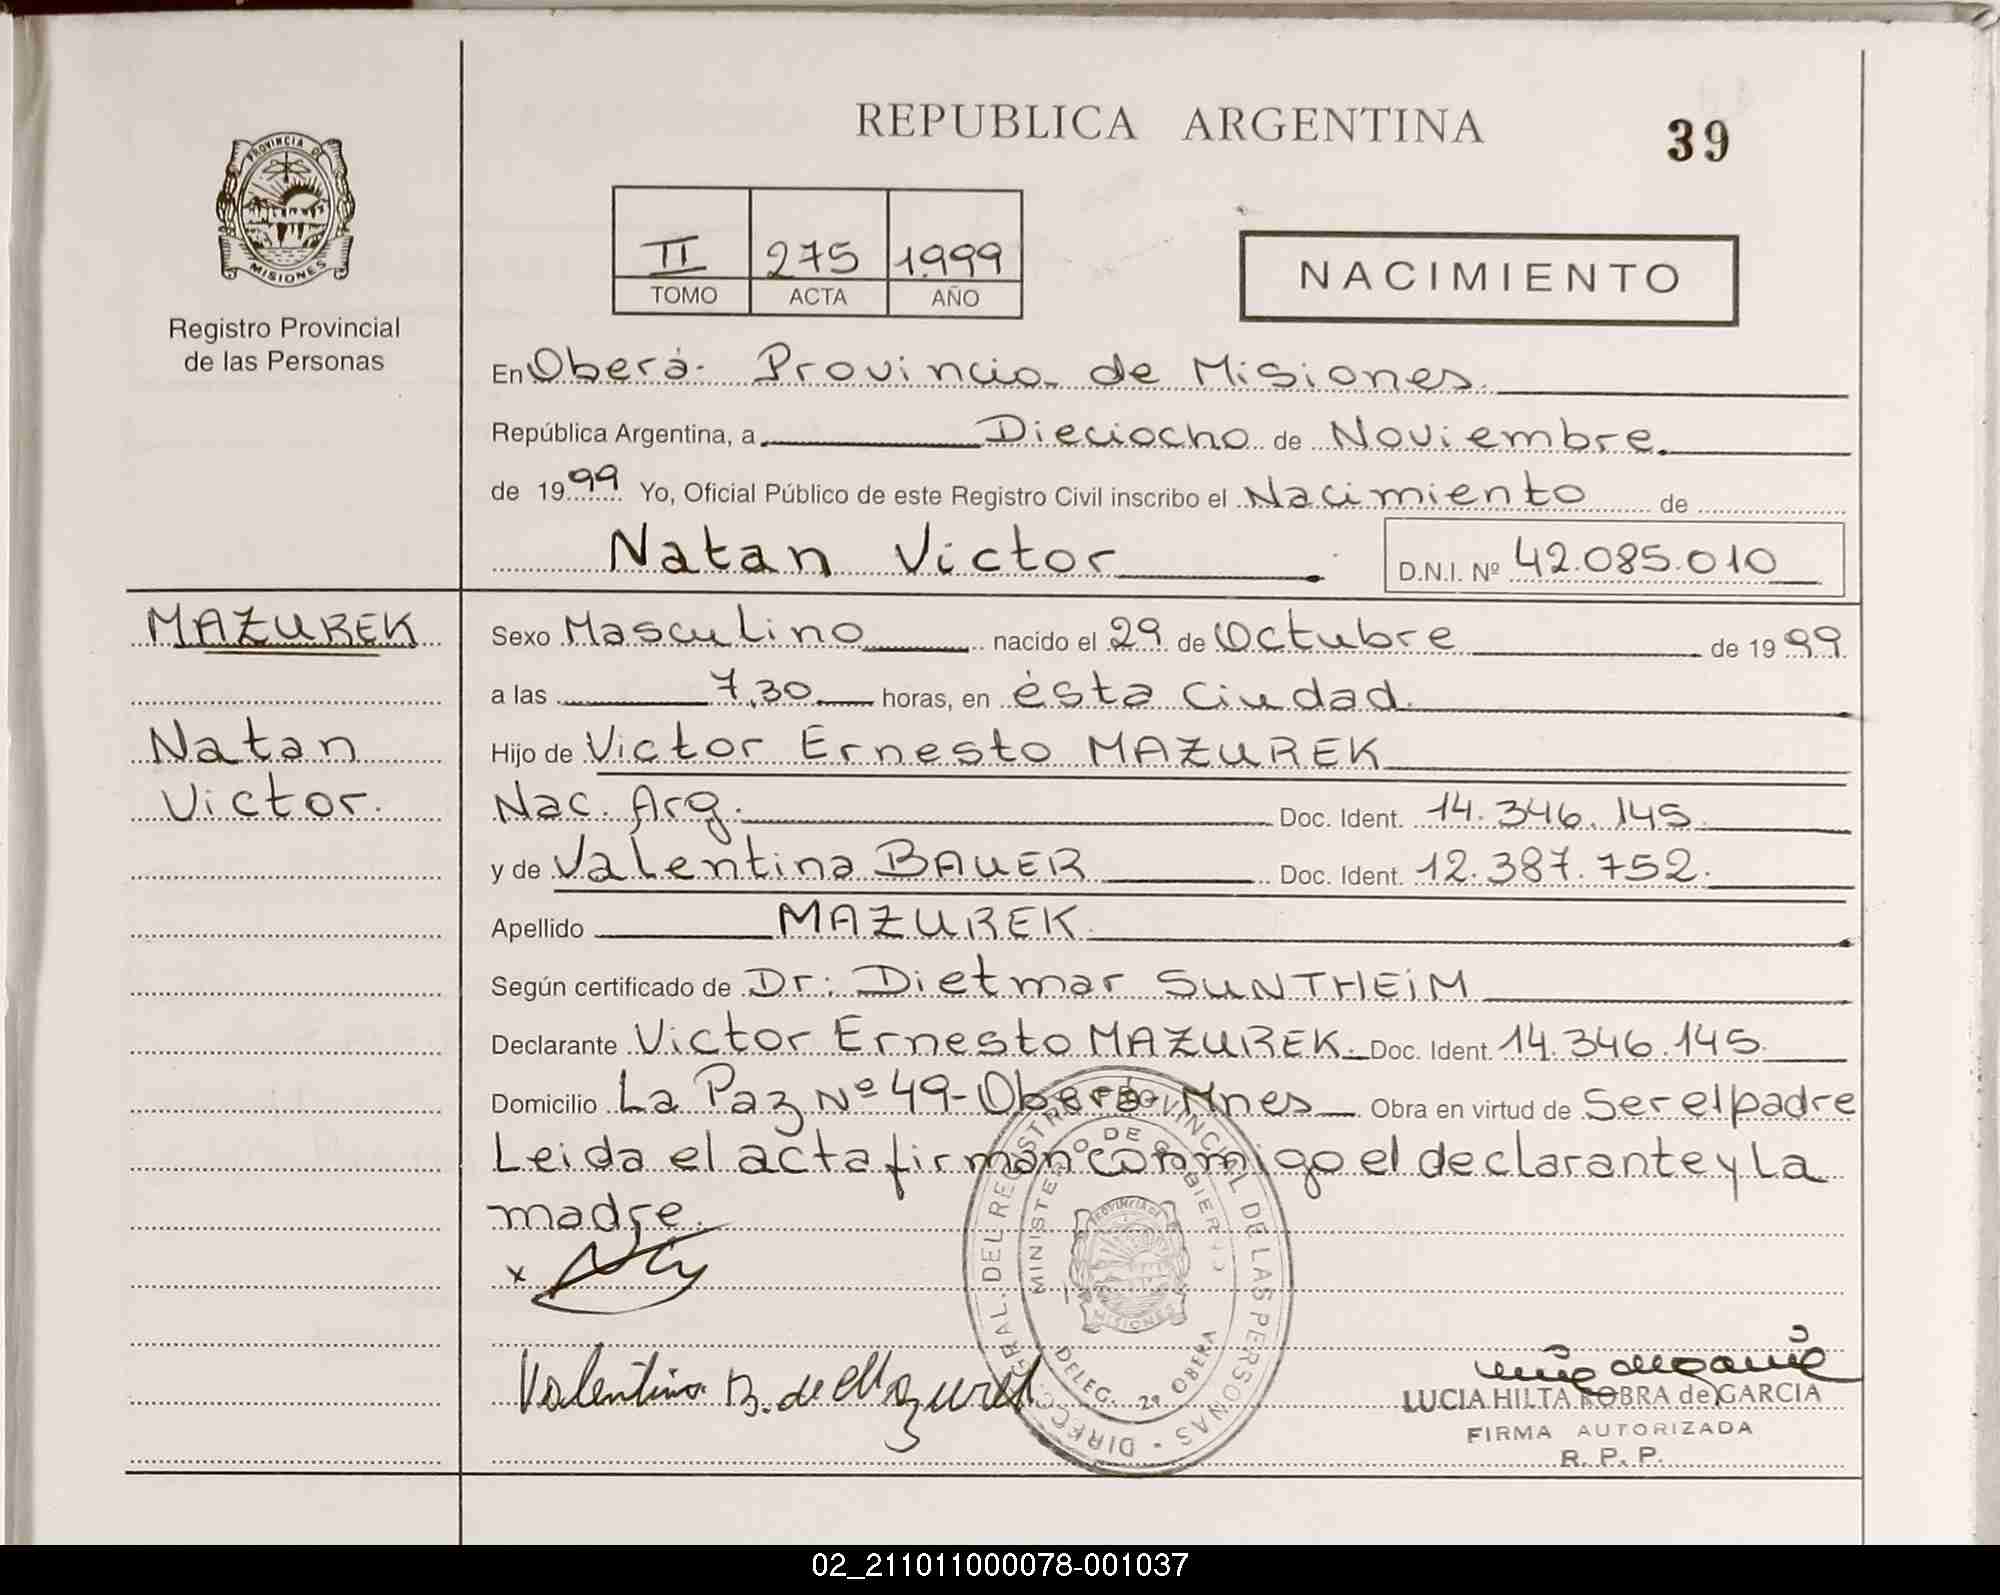 REPUBLICA ARGENTINA
39
PROVINCIA DE
MISIONES
Registro Provincial
de las Personas
II 275 1.999
TOMO ACTA AÑO
NACIMIENTO
En Oberá. Provincia de Misiones.
República Argentina, a Dieciocho de Noviembre.
de 1999 Yo, Oficial Público de este Registro Civil inscribo el Nacimiento de
Natan Victor
D.N.I. Nº 42.085.010
MAZUREK
Natan
Victor.
Sexo Masculino nacido el 29 de Octubre de 1999
a las 7,30 horas, en ésta Ciudad.
Hijo de Victor Ernesto MAZUREK
Nac. Arg. Doc. Ident. 14.346.145
y de Valentina BAUER Doc. Ident. 12.387.752.
Apellido MAZUREK
Según certificado de Dr: Dietmar SUNTHEiM
Declarante Victor Ernesto MAZUREK. Doc. Ident. 14.346.145
Domicilio La Paz Nº 49-Oberá-Mnes Obra en virtud de Ser el padre
Leida el acta firman conmigo el declarante y La
madre.
x
Valentina B. de Mazurek
DIRECC. GRAL. DEL REGISTRO PROVINCIAL DE LAS PERSONAS -
MINISTERIO DE GOBIERNO
PROVINCIA DE
MISIONES
DELEG. 2º OBERA
LUCIA HILTA ROBRA de GARCIA
FIRMA AUTORIZADA
R. P. P.
02_211011000078-001037